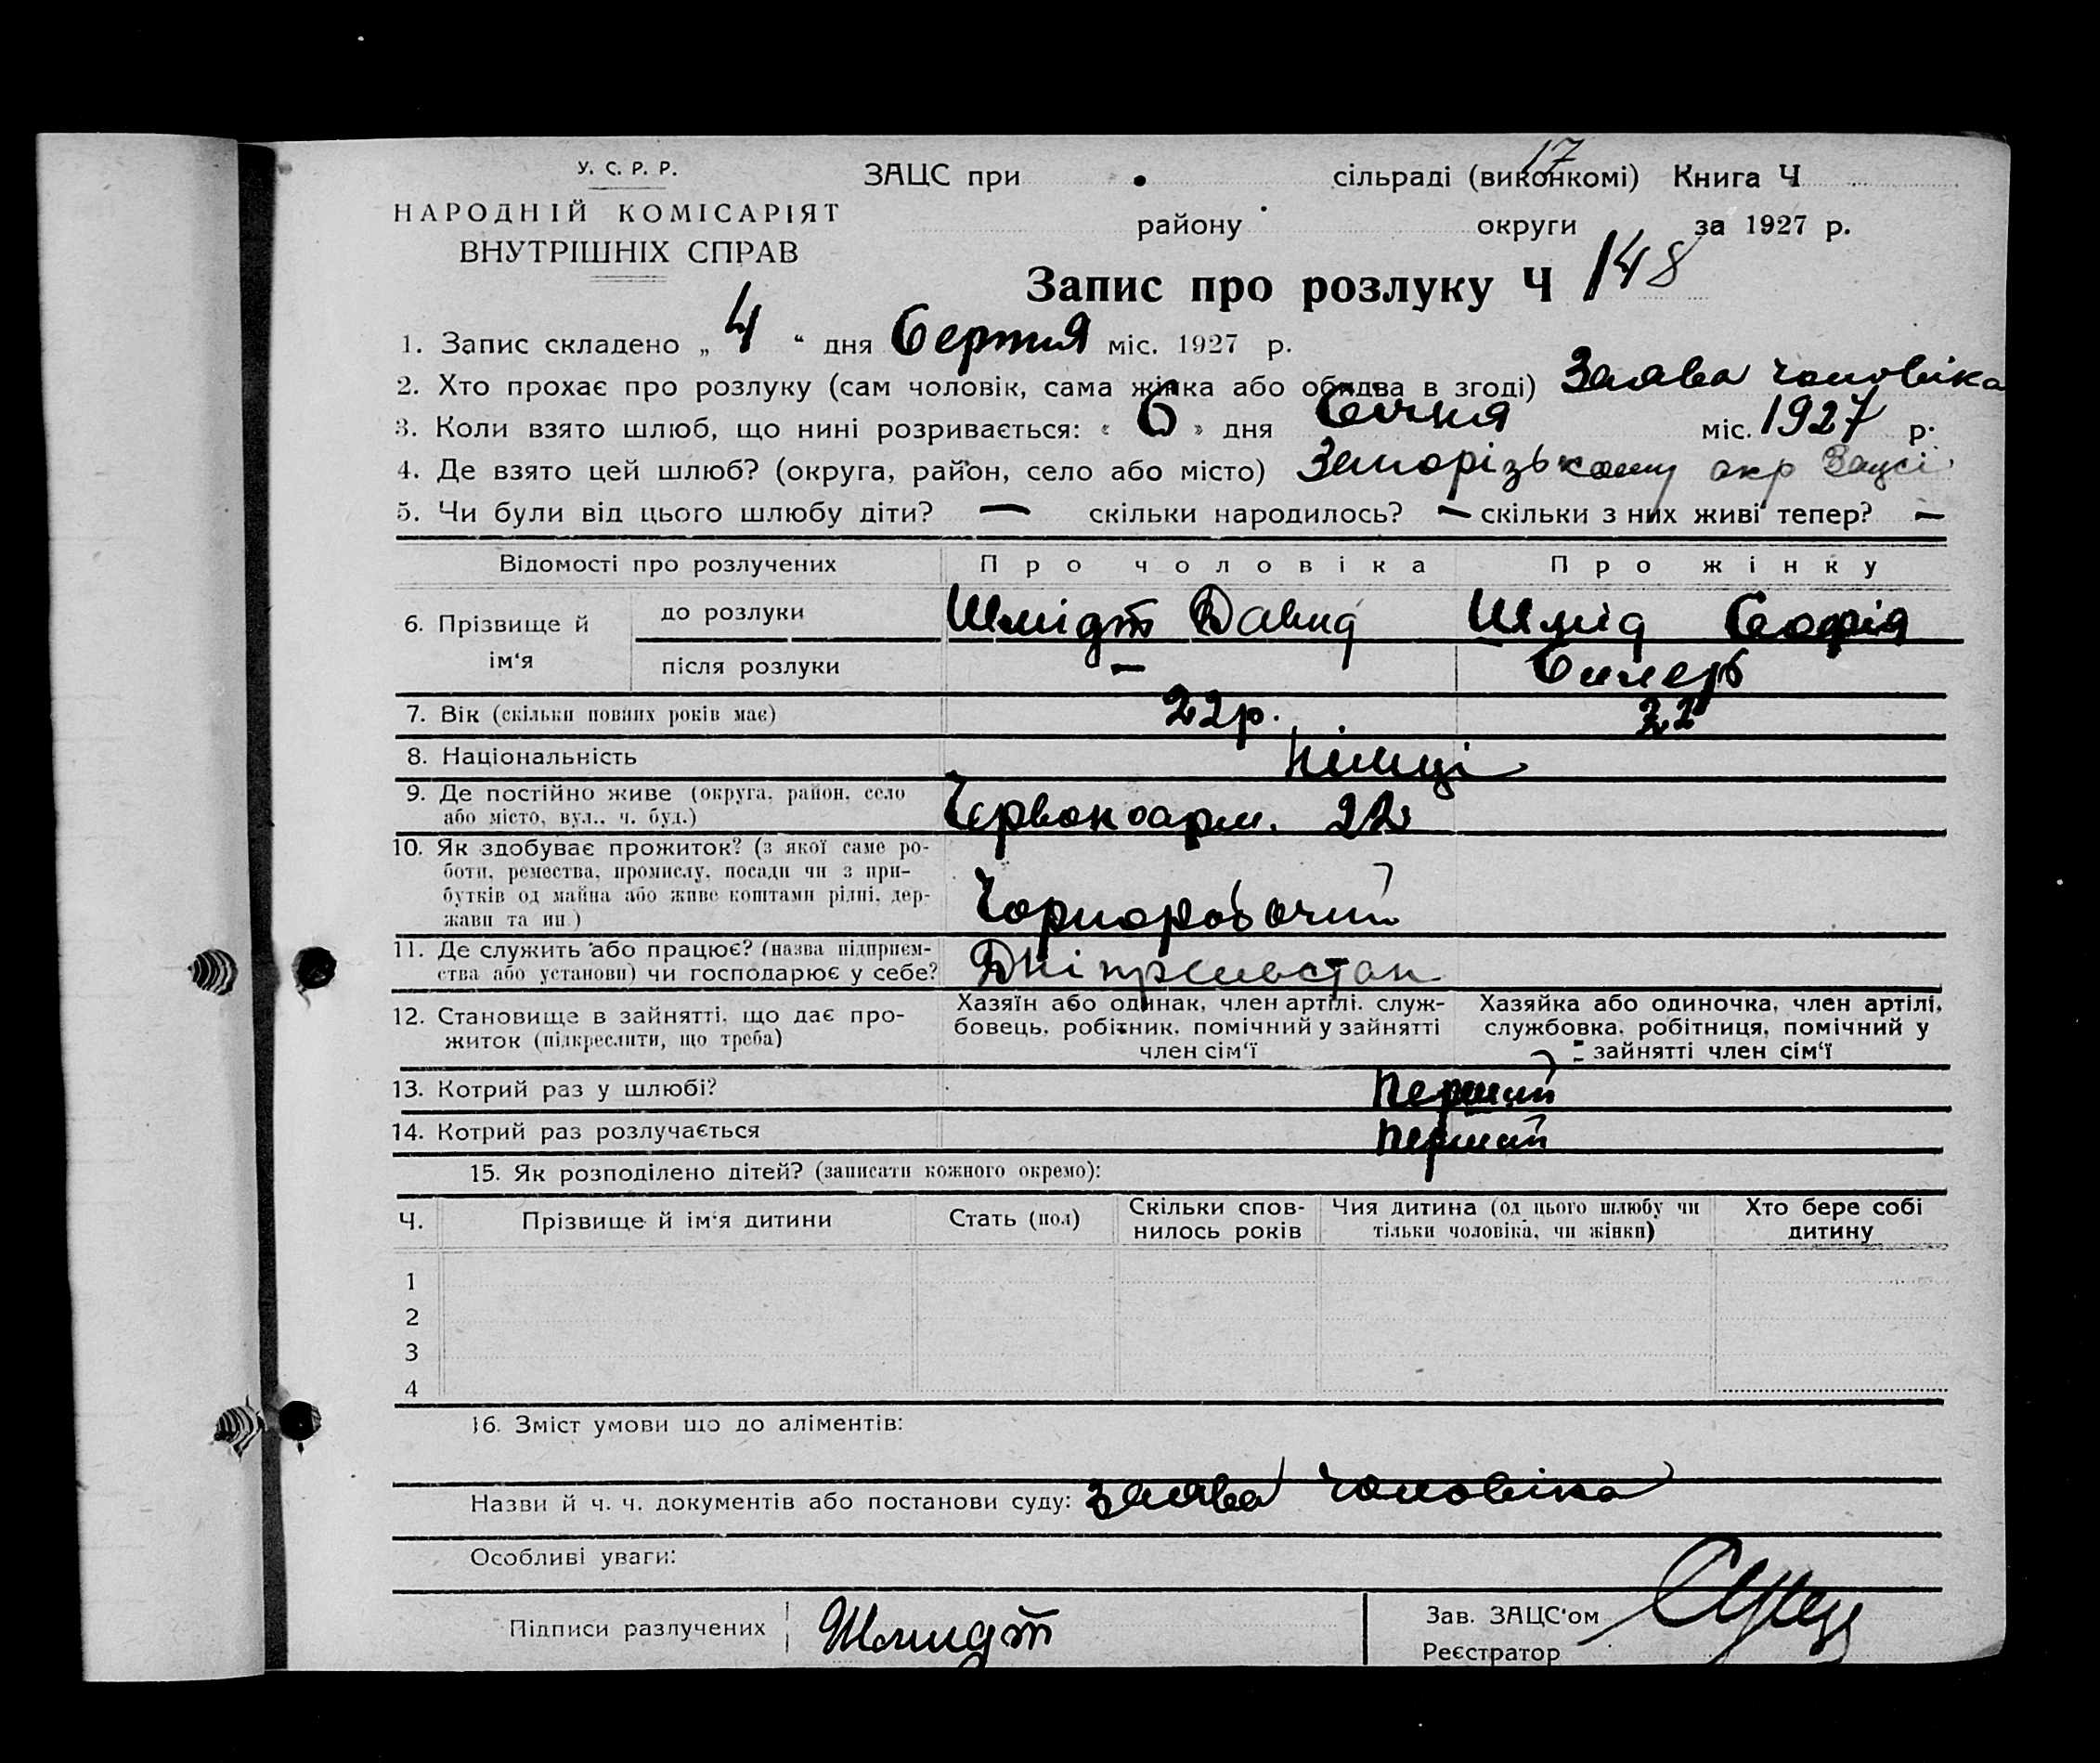 У. С. Р. Р.
НАРОДНІЙ КОМІСАРІЯТ
ВНУТРІШНІХ СПРАВ
17
ЗАЦС при сільраді (виконкомі) Книга Ч
району округи за 1927 р.
Запис про розлуку Ч 148
1. Запис складено „ 4 “ дня Серпня міс. 1927 р.
2. Хто прохає про розлуку (сам чоловік, сама жінка або обидва в згоді) Заява чоловіка
3. Коли взято шлюб, що нині розривається: « 6 » дня Січня міс. 1927 р.
4. Де взято цей шлюб? (округа, район, село або місто) Запорізькому окр Зацсі
5. Чи були від цього шлюбу діти? — скільки народилось? — скільки з них живі тепер? —
Відомості про розлучених Про чоловіка Про жінку
6. Прізвище й ім‘я до розлуки Шмідт Давид Шмід Софія
після розлуки —
7. Вік (скільки повних років має) 22р. 22
8. Національність німці
9. Де постійно живе (округа, район, село
або місто, вул., ч. буд.) Червоноарм. 22
10. Як здобуває прожиток? (з якої саме ро-
боти, ремества, промислу, посади чи з при-
бутків од майна або живе коштами рідні, дер-
жави та ин.) Чорноробочий
11. Де служить або працює? (назва підприєм-
ства або установи) чи господарює у себе?
12. Становище в зайнятті, що дає про-
житок (підкреслити, що треба)
Хазяїн або одинак, член артілі, служ-
бовець, робітник, помічний у зайнятті
член сім‘ї
Хазяйка або одиночка, член артілі,
службовка, робітниця, помічний у
зайнятті член сім‘ї
13. Котрий раз у шлюбі? перший
14. Котрий раз розлучається перший
15. Як розподілено дітей? (записати кожного окремо):
Ч. Прізвище й ім‘я дитини Стать (пол) Скільки спов-
нилось років Чия дитина (од цього шлюбу чи
тільки чоловіка, чи жінки) Хто бере собі
дитину
1
2
3
4
16. Зміст умови що до аліментів:
Назви й ч. ч. документів або постанови суду: заява чоловіка
Особливі уваги:
Підписи разлучених Шмидт
Зав. ЗАЦС‘ом
Реєстратор